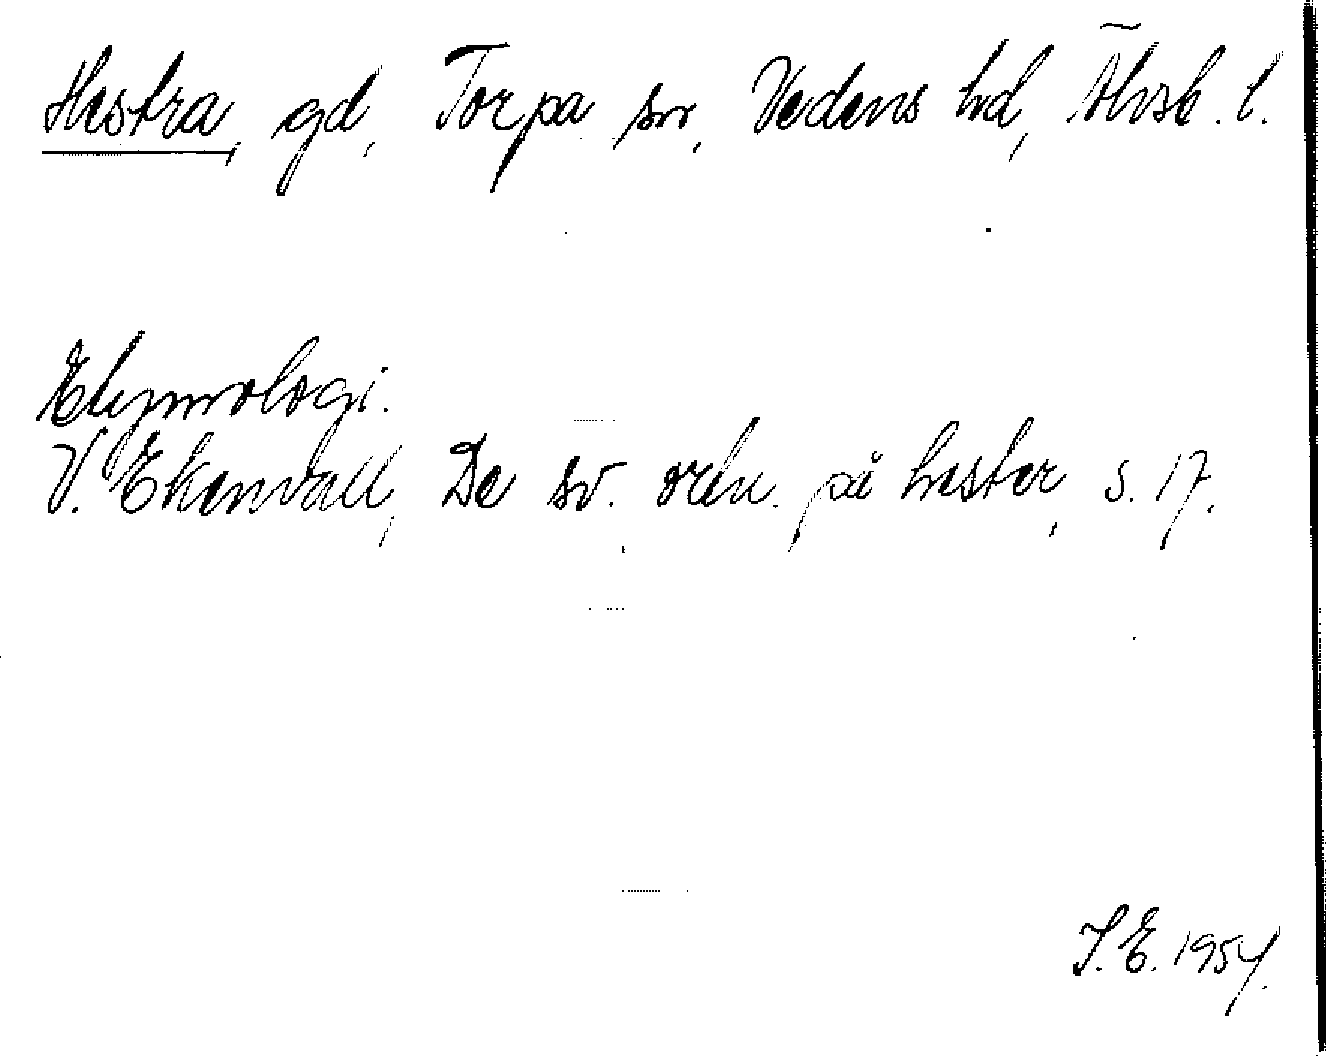 Hestra, gd, Torpa sn, Vedens hd, Älvsb. l.
Etymologi.
V. Ekenvall, De sv. ortn. på hester, s. 17.
I. E. 1954.